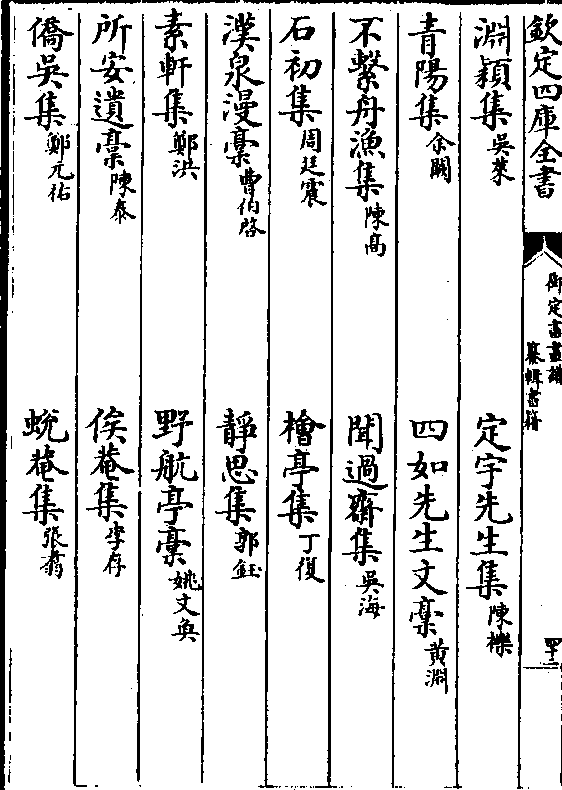 欽定四庫全書
御定書畫譜
纂輯書籍
四十二
淵穎集吳萊 定宇先生集陳櫟
青陽集余闕 四如先生文稾黄淵
不繫舟漁集陳高 聞過齋集吳海
石初集周廷震 檜亭集丁復
漢泉漫稾曹伯啓 靜思集郭鈺
素軒集鄭洪 野航亭稾姚文奐
所安遺稾陳泰 俟菴集李存
僑吳集鄭元祐 蛻菴集張翥